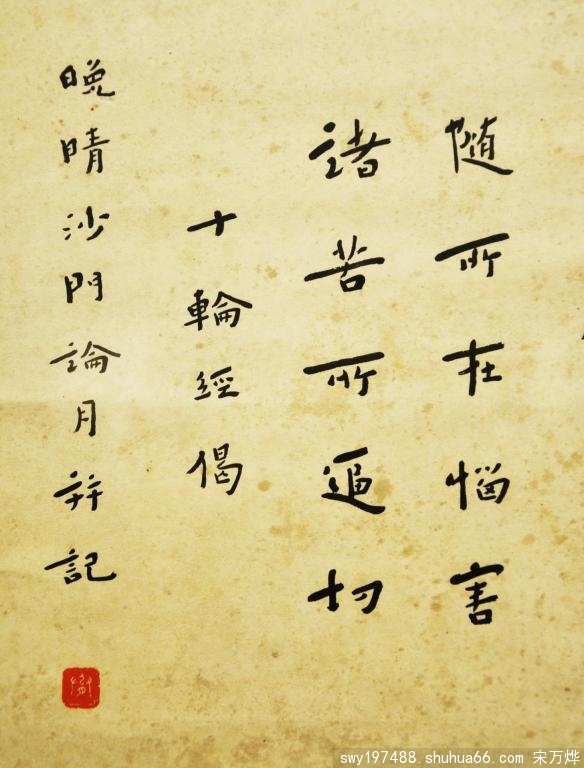 随所在惱害
諸苦所逼切
十輪經偈
晚晴沙門論月并記
swy197488.shuhua66.com 宋万烨